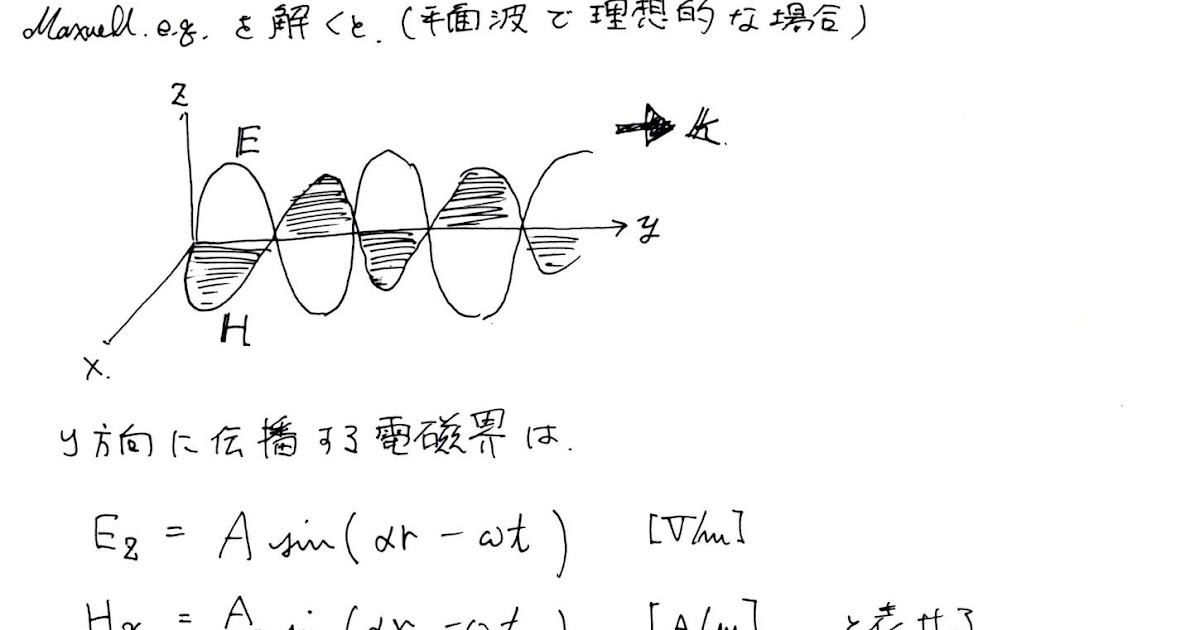 Maxwell. e.q. を解くと.(平面波で理想的な場合)
Z
E
k.
y
H
x.
y方向に伝播する電磁界は.
Ez = A sin(αr - ωt) [V/m]
Hx = A sin(αr - ωt) [A/m] と表せる